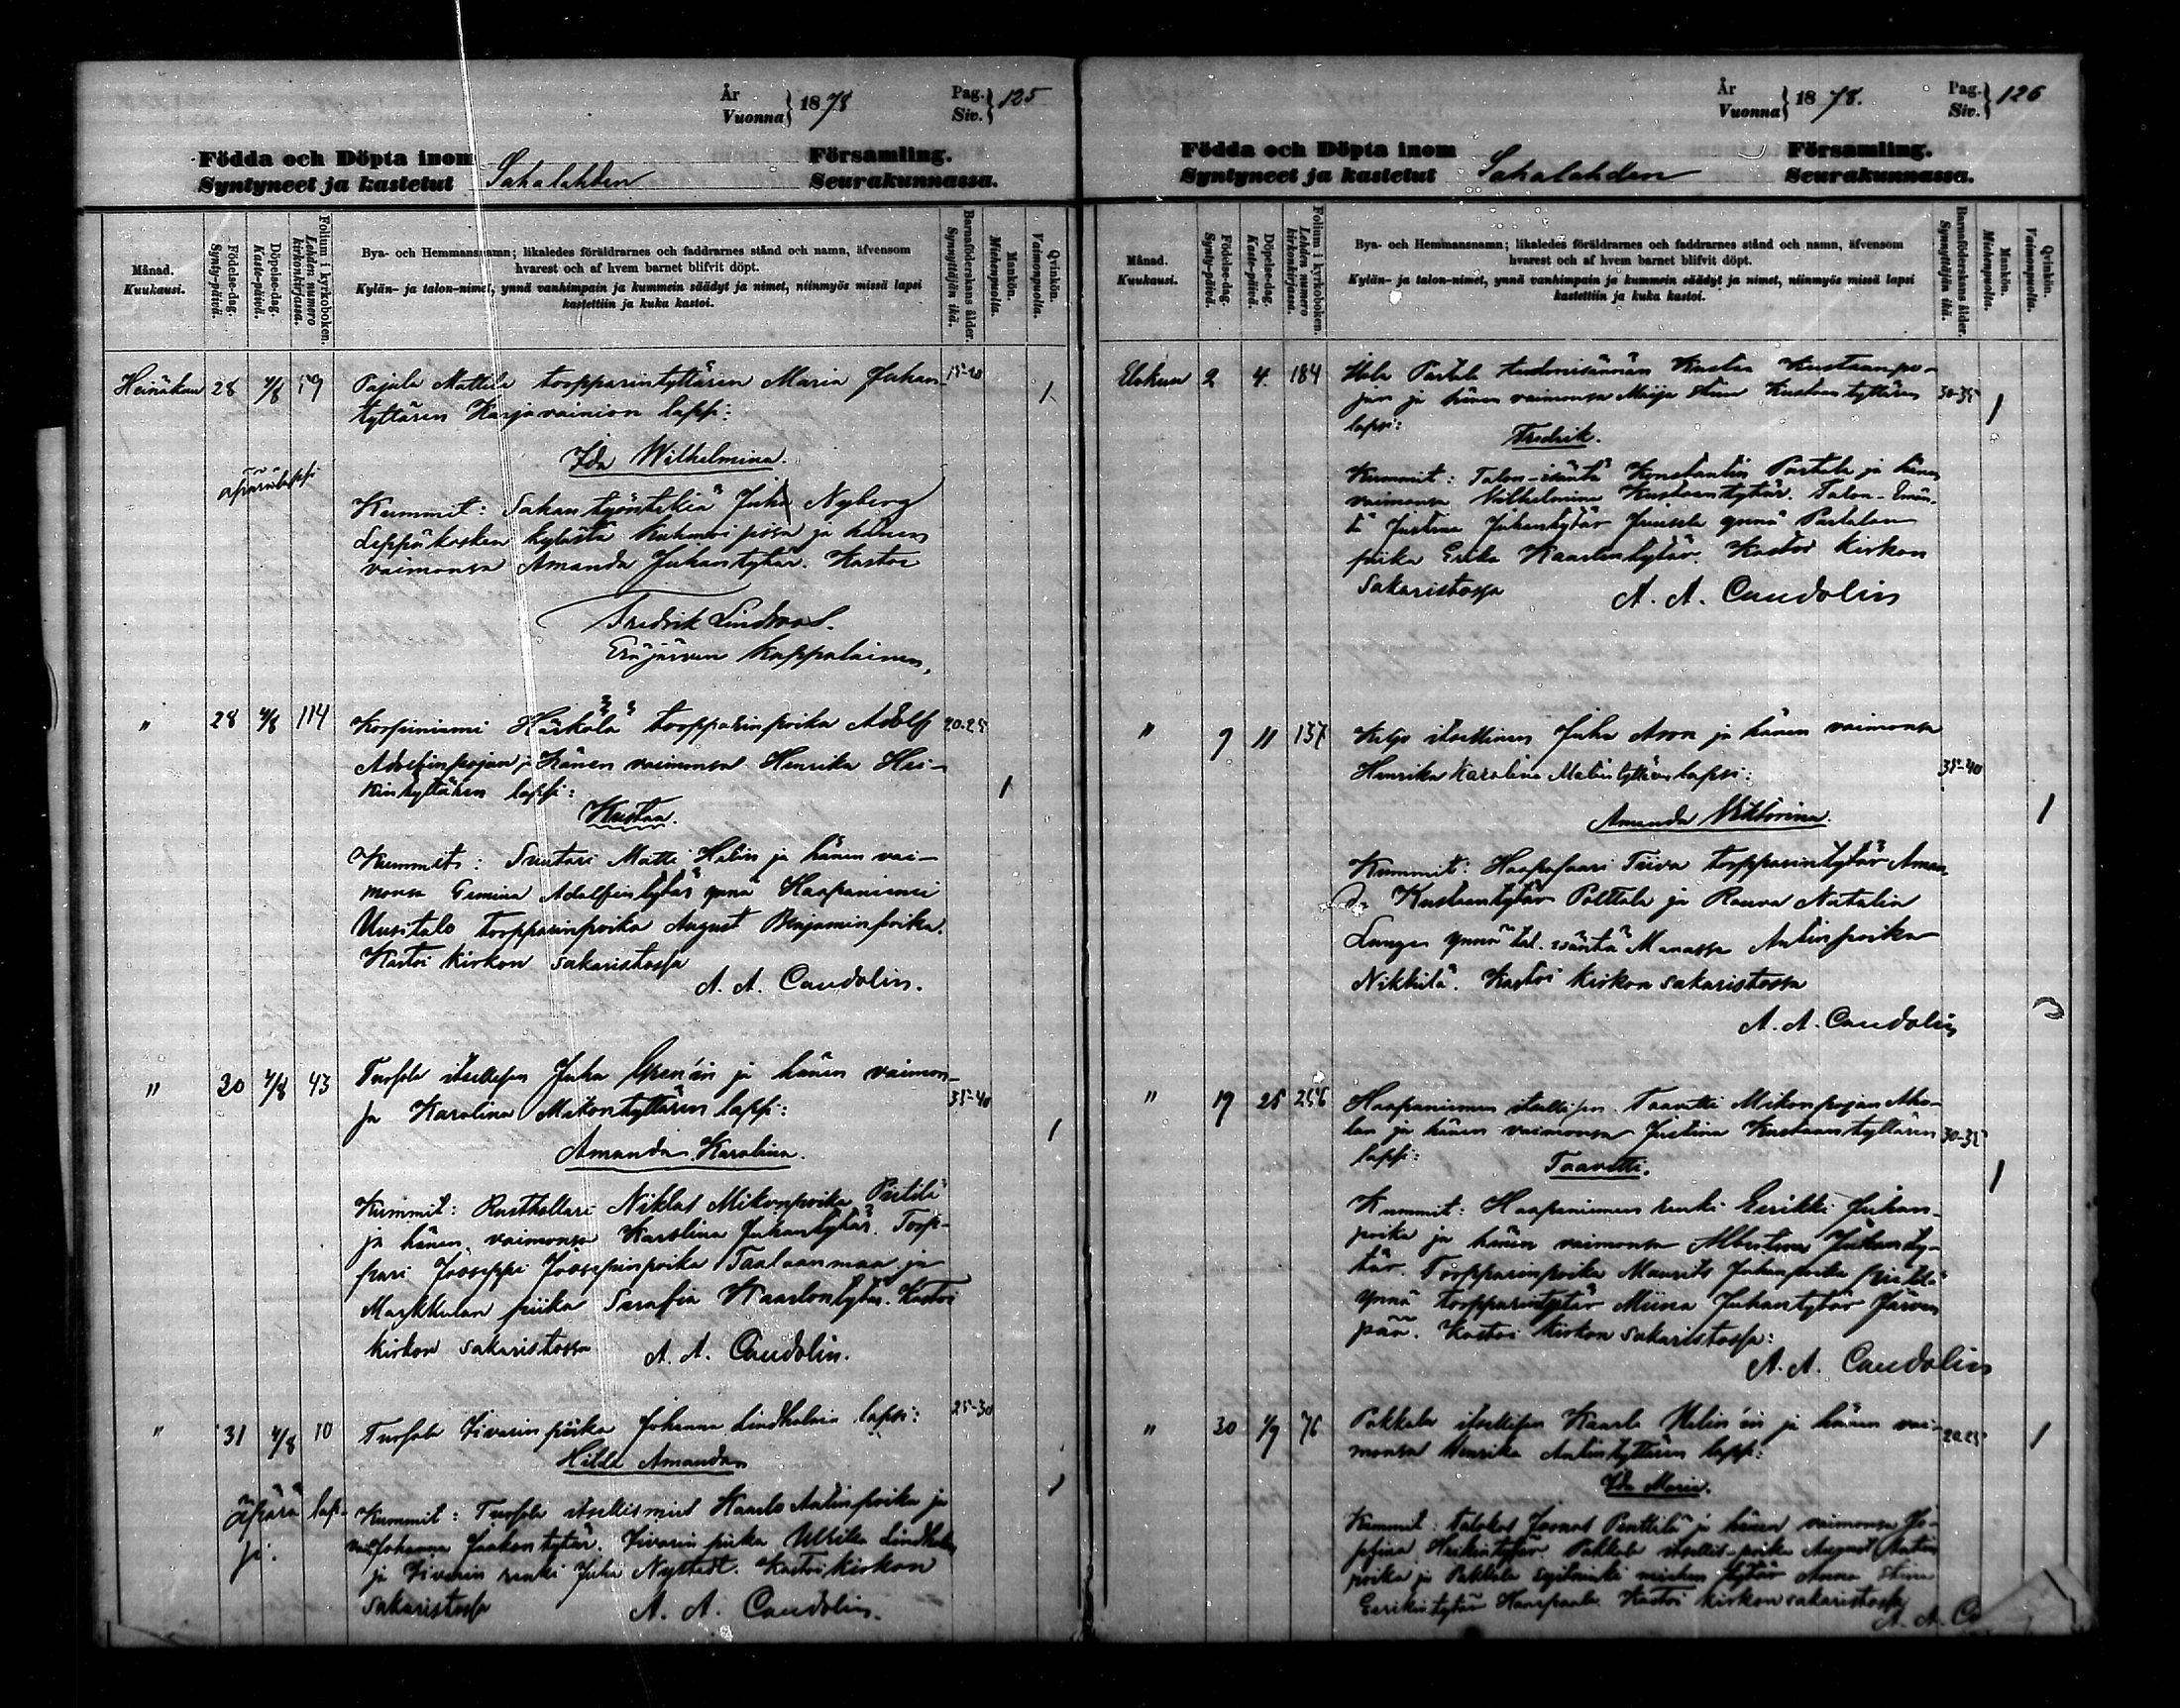 År
Vuonna } 1878
Pag.
Siv. } 125
Födda och Döpta inom Församling.
Syntyneet ja kastetut Sahalahden Seurakunnassa.
Månad.
Kuukausi.
Födelse-dag.
Synty-päivä.
Döpelse-dag.
Kaste-päivä.
Folium i kyrkoboken.
Lehden numero kirkonkirjassa.
Bya- och Hemmansnamn; likaledes föräldrarnes och faddrarnes stånd och namn, äfvensom
hvarest och af hvem barnet blifvit döpt.
Kylän- ja talon-nimet, ynnä vanhimpain ja kummein säädyt ja nimet, niinmyös missä lapsi
kastettiin ja kuka kastoi.
Barnaföderskans ålder.
Synnyttäjän ikä.
Mankön.
Miehenpuolta.
Qvinkön.
Vaimonpuolta.
Heinäkuu 28 4/8 59 Pajula Mattila torpparintyttären Maria Juhan- 15-20
tyttären Karjavainion lapsi: 1
Ida Wilhelmina.
äpärälapsi
Kummit: Sahantyöntekiä Juha Nyberg
Leppäkosken kylästä Kuhmoisissa ja hänen
vaimonsa Amanda Juhantytär. Kastoi
Fredrik Lindroos.
Eräjärven Kappalainen.
" 28 4/8 114 Korpiniemi Härkälä torpparinpoika Adolf 20-25
Adolfinpojan ja Hänen vaimonsa Henrika Hei-
kintyttären lapsi: 1
Kustaa.
Kummit: Suutari Matti Halin ja hänen vai-
monsa Gemina Adolfintytär ynnä Haapaniemi
Uusitalo torpparinpoika August Benjaminpoika.
Kastoi kirkon sakaristossa
A. A. Candolin.
" 30 4/8 43 Tursola itsellisen Juha Gren'in ja hänen vaimon-
sa Karolina Matontyttären lapsi: 35-40
1
Amanda Karolina.
Kummit: Rusthollari Niklas Mikonpoika Pietilä
ja hänen vaimonsa Karolina Juhantytär. Torp-
pari Jooseppi Joosepinpoika Taalaanmaa ja
Markkulan piika Serafia Kaarlontytär. Kastoi
kirkon sakaristossa A. A. Candolin.
" 31 4/8 10 Tursola Iivarin piika Johanna Lindholmin lapsi: 25-30
Hilda Amanda
1
äpärä lap-
si.
Kummit: Tursola itsellismies Kaarlo Antinpoika ja
vai. Johanna Jaakontytär. Iivarin piika Ulrika Lindholm
ja Iivarin renki Juha Nystedt. Kastoi kirkon
sakaristossa A. A. Candolin.
År
Vuonna } 1878.
Pag.
Siv. } 126
Födda och Döpta inom Församling.
Syntyneet ja kastetut Sahalahden Seurakunnassa.
Månad.
Kuukausi.
Födelse-dag.
Synty-päivä.
Döpelse-dag.
Kaste-päivä.
Folium i kyrkoboken.
Lehden numero kirkonkirjassa.
Bya- och Hemmansnamn; likaledes föräldrarnes och faddrarnes stånd och namn, äfvensom
hvarest och af hvem barnet blifvit döpt.
Kylän- ja talon-nimet, ynnä vanhimpain ja kummein säädyt ja nimet, niinmyös missä lapsi
kastettiin ja kuka kastoi.
Barnaföderskans ålder.
Synnyttäjän ikä.
Mankön.
Miehenpuolta.
Qvinkön.
Vaimonpuolta.
Elokuu 2 4. 184 Partala Kustaa Kustaanpo-
jan ja hänen vaimonsa Maija Stina Kustaantyttären 30-35
lapsi: 1
Fredrik.
Kummit: Talon-isäntä Konstantin Partala ja hänen
vaimonsa Wilhelmina Kustaantytär. Talon-Emän-
tä Justina Juhantytär Juusela ynnä Partalan
piika Erika Kaarlontytär. Kastoi Kirkon
Sakaristossa A. A. Candolin
" 9 11 137 itsellinen Juha Aron ja hänen vaimonsa
Henrika Karolina Matintyttären lapsi: 35-40
Amanda Wiktorina. 1
Kummit: Haapasaari Tiiva torpparintytär Aman-
da Kustaantytär Palttala ja Rouva Natalia
Lunge ynnä tal. isäntä Manassa Antinpoika
Nikkilä. Kastoi kirkon sakaristossa
A. A. Candolin
" 19 25 256 Haapaniemen itsellisen Taavetti Mikonpojan Aho-
lan ja hänen vaimonsa Justina Kustaantyttären 30-35
lapsi: Taavetti. 1
Kummit: Haapaniemen renki Eerikki Juhan-
poika ja hänen vaimonsa Albertina Juhanty-
tär. Torpparinpoika Maurits Juhanpoika
ynnä torpparintytär Miina Juhantytär Järven
pää. Kastoi kirkon sakaristossa:
A. A. Candolin
" 30 1/9 76 Pakkala itsellisen Kaarle Helin'in ja hänen vai- 20-25
monsa Henrika Antintyttären lapsi: 1
Ida Maria.
Kummit: Joonas Penttilä ja hänen vaimonsa Jo-
sefina Heikintytär. Pakkala itsellis-poika August Antin
poika ja Pakkala miehen tytär Anna Stina
Eerikintytär Haapsaalo. Kastoi kirkon sakaristossa
A. A. C